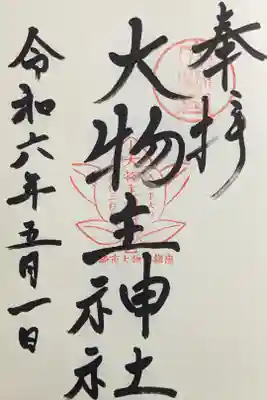 奉拝
大物主神社
令和六年五月一日